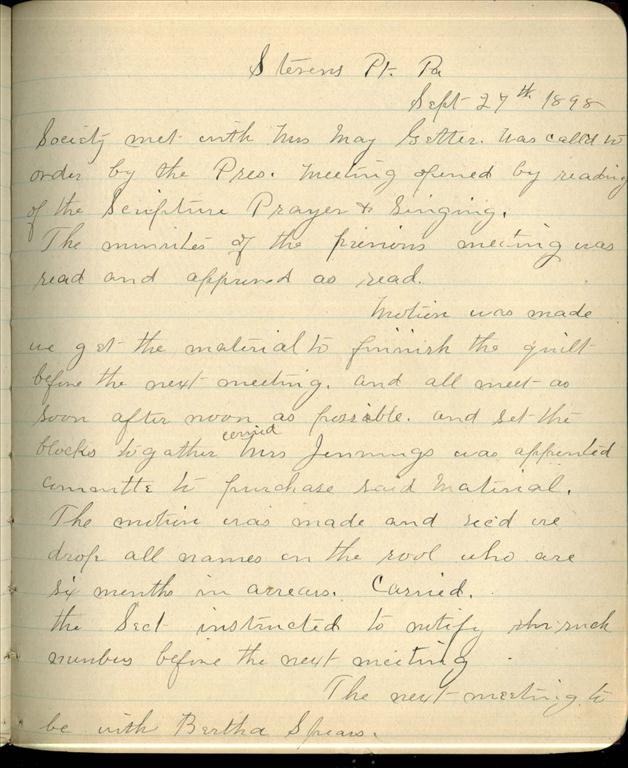 Stevens Pt. Pa
Sept 27th 1898
Society met with Mrs May Getter. Was called to
order by the Pres. Meeting opened by reading
of the Scripture Prayer & Singing.
The minutes of the previous meeting was
read and approved as read.
Motion was made
we get the material to finnish the quilt
before the next meeting. and all meet as
soon after noon as possible. and set the
blocks togather carried Mrs Jennings was appointed
committe to purchase said material.
The motion was made and sec'd we
drop all names on the rool who are
six months in arrears. Carried.
the Sect instructed to notify such
members before the next meeting
The next meeting to
be with Bertha Spears.